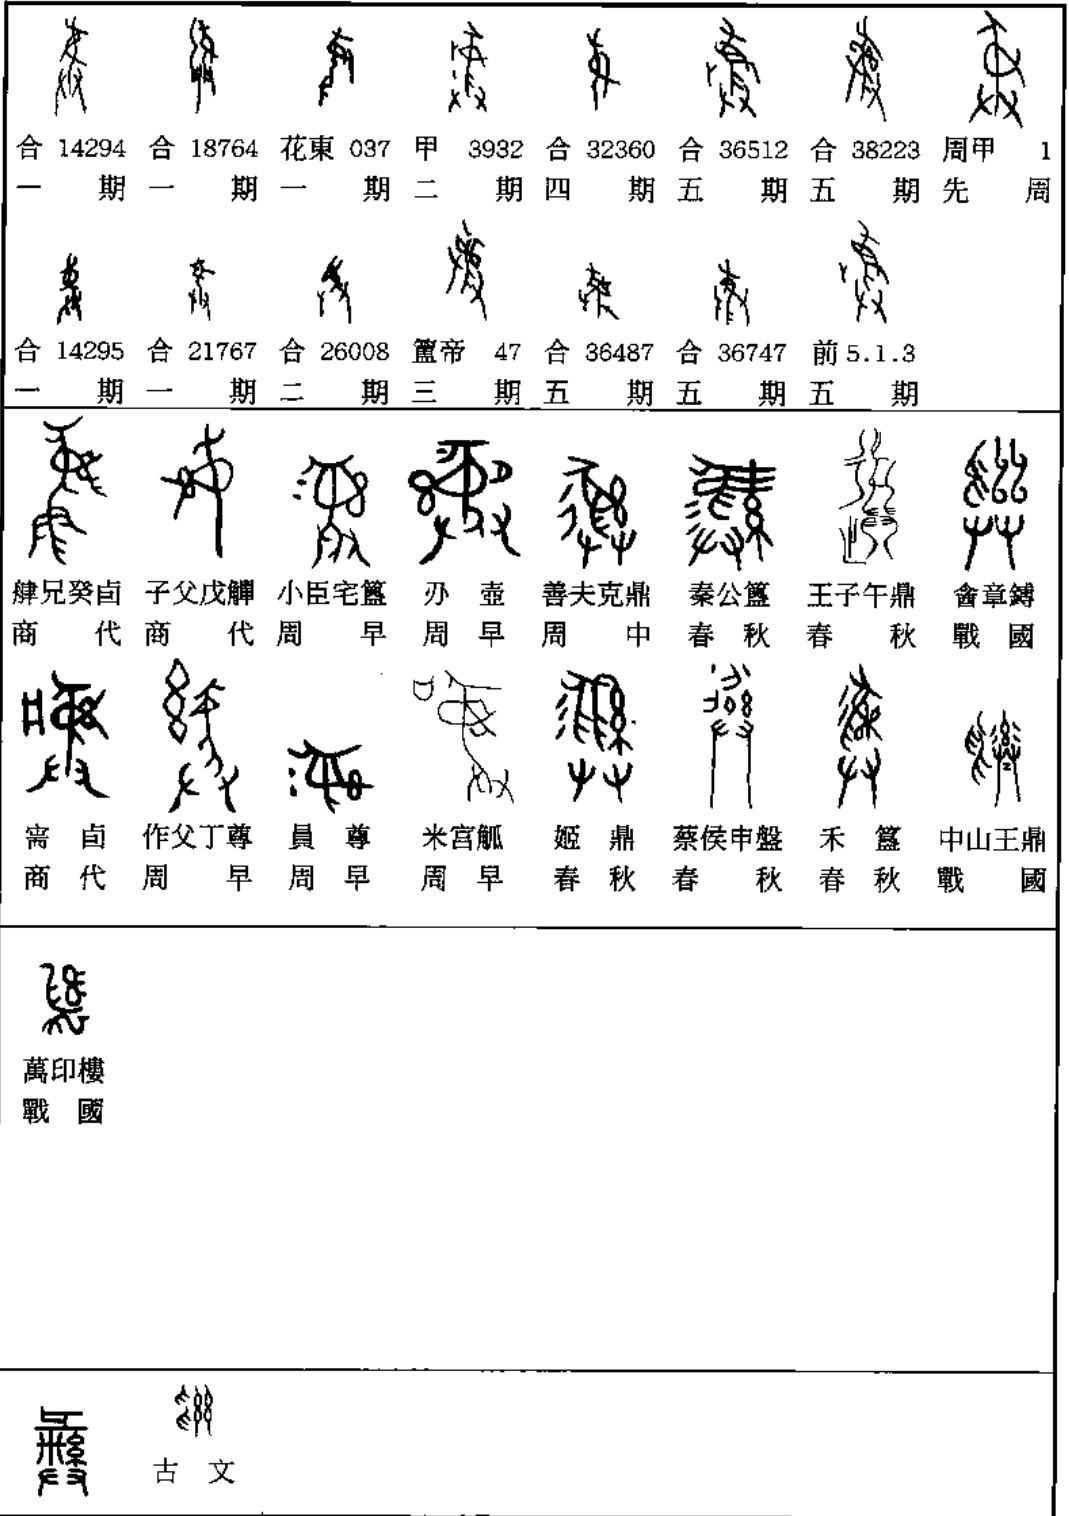 合 14294 合 18764 花東 037 甲 3932 合 32360 合 36512 合 38223 周甲 1
一期 一期 一期 二期 四期 五期 五期 先周
合 14295 合 21767 合 26008 簠帝 47 合 36487 合 36747 前 5.1.3
一期 一期 二期 三期 五期 五期 五期
肄兄癸卣 子父戊觶 小臣宅簋 刅壺 善夫克鼎 秦公簋 王子午鼎 酓章鎛
商代 商代 周早 周早 周中 春秋 春秋 戰國
卣 作父丁尊 員尊 米宮觚 姬鼎 蔡侯申盤 禾簋 中山王鼎
商代 周早 周早 周早 春秋 春秋 春秋 戰國
萬印樓
戰國
彝 古文